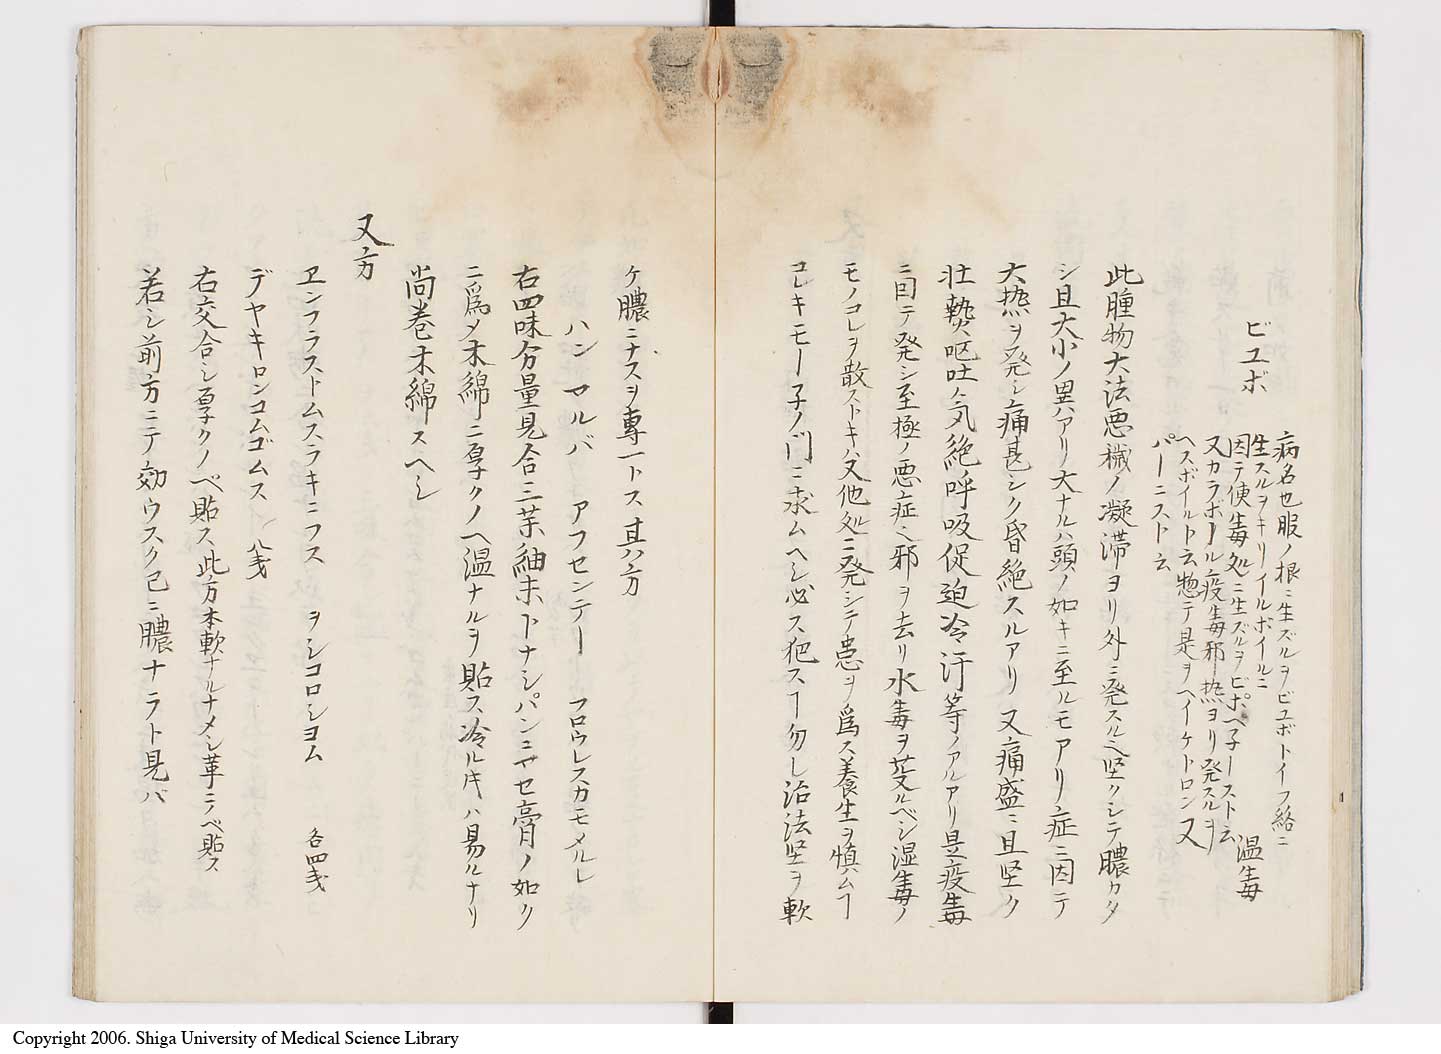 ビユボ
病名也服ノ根ニ生ズルヲビユボトイフ絡ニ
生スルヲキリイルボイルニ 温毒
因テ便毒処ニ生ズルヲピポペ子ースト云
又カラボール疫毒邪熱ヨリ発スルヲ
ヘスボイルト云惣テ是ヲヘイケトロン又
パーニスト云
此腫物大法悪穢ノ凝滞ヨリ外ニ発スル也堅クシテ膿カタ
シ且大小ノ異ハアリ大ナルハ頭ノ如キニ至ルモアリ症ニ因テ
大热ヲ発シ痛甚シク昏絶スルアリ又痛盛ニ且堅ク
壮熱呕吐気絶呼吸促迫冷汗等ノアルアリ是疫毒
ニ因テ発シ至極ノ悪症也邪ヲ去リ水毒ヲ発ルベシ湿毒ノ
モノコレヲ散ストキハ又他処ニ発シテ患ヲ為ス養生ヲ慎ムヿ
コレキモー子ノ門ニ求ムヘシ必ス犯スヿ勿レ治法堅ヲ軟
ケ膿ニナスヲ專一トス其方
ハンマルバ アフセンテー フロウレスカモメルレ
右四味分量見合三葉細末トナシパンニヤセ膏ノ如ク
ニ為メ木綿ニ厚クノヘ温ナルヲ貼ス冷ル時ハ易ルナリ
尚巻木綿スヘシ
又方
ヱンフラストムスラキニフス ヲシコロシヨム 各四戔
デヤキロンコムゴムスイ 八戔
右交合シ厚クノベ貼ス此方本軟ナルナメシ革ニノベ貼ス
若シ前方ニテ効ウスク已ニ膿ナラト見バ
Copyright 2006. Shiga University of Medical Science Library